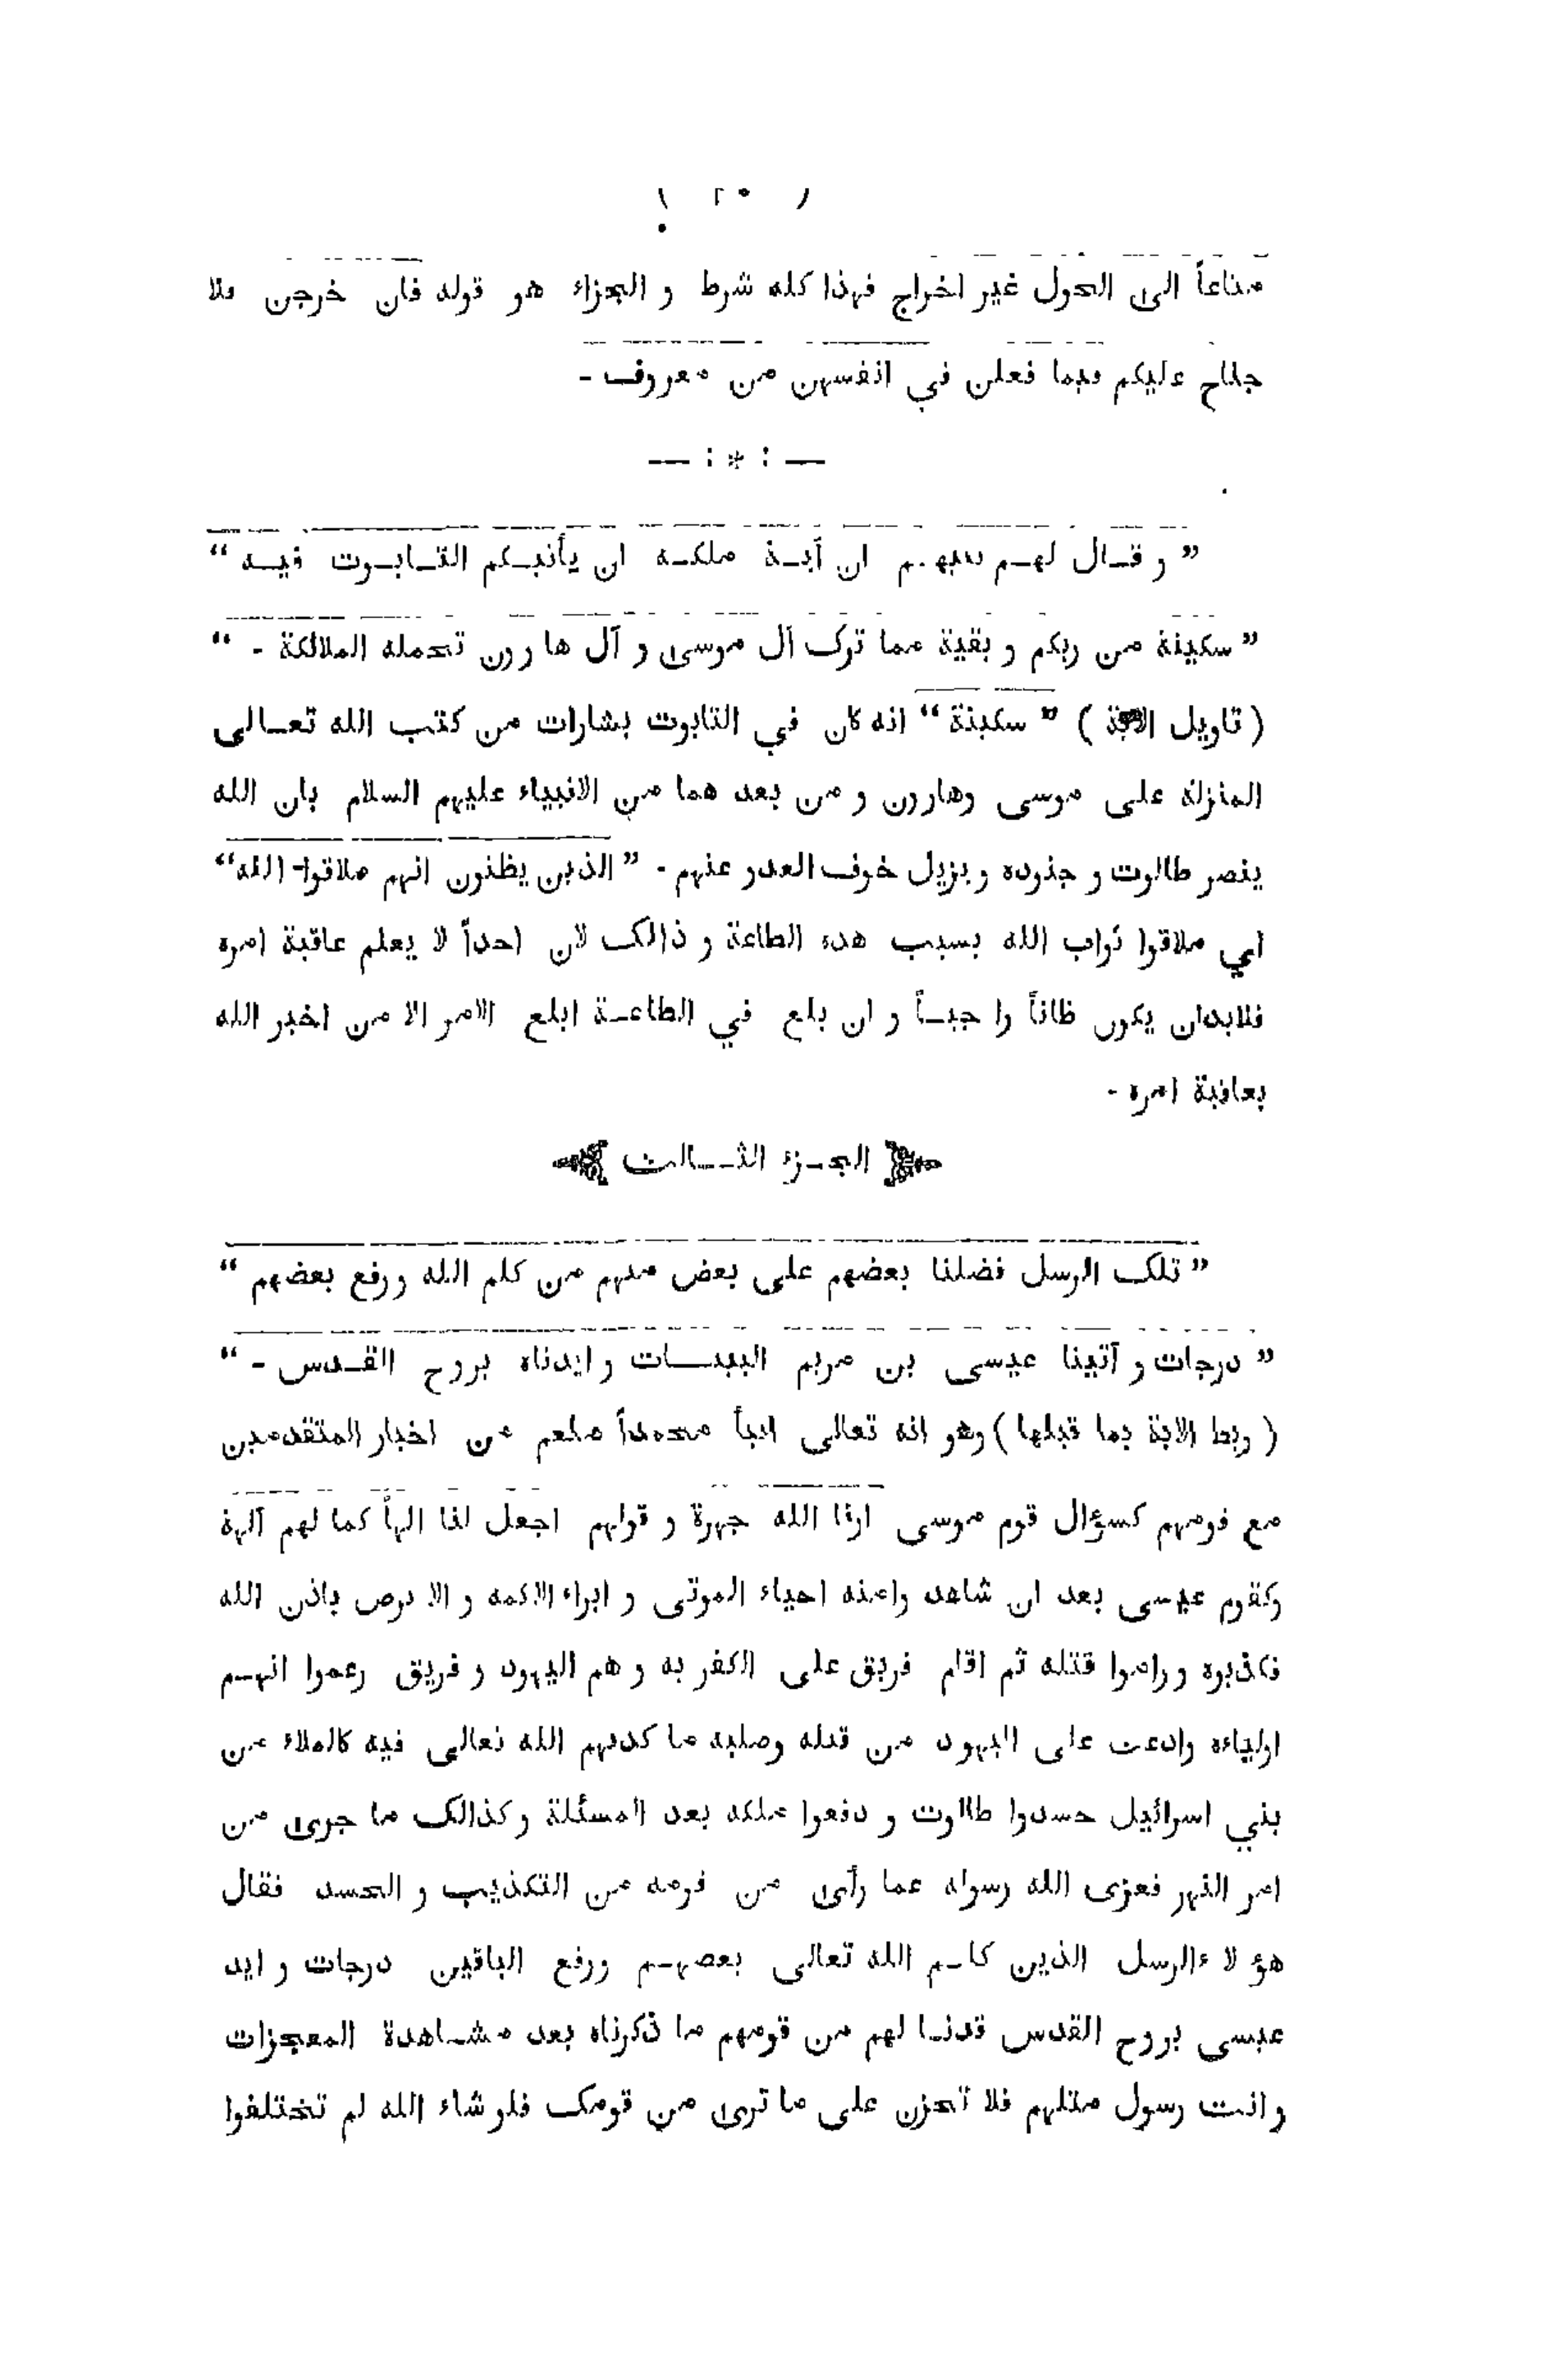 ( ٢٠ )
متاعاً الى الحول غير اخراج فهذا كله شرط و الجزاء هو قوله فان خرجن فلا
جناح عليكم فيما فعلن في انفسهن من معروف -
— : * : —
” و قـال لهـم نبيهـم ان آيـة ملكـه ان يأتيـكم التـابـوت فيـه “
” سكينة من ربكم و بقية مما ترك آل موسى و آل هارون تحمله الملائكة - “
( تاويل الآية ) ” سكينة “ انه كان في التابوت بشارات من كتب الله تعـالى
المنزلة على موسى وهارون و من بعد هما من الانبياء عليهم السلام بان الله
ينصر طالوت و جنوده ويزيل خوف العدو عنهم - ” الذين يظنون انهم ملاقوا الله “
اي ملاقوا ثواب الله بسبب هذه الطاعة و ذالك لان احداً لا يعلم عاقبة امره
فلابدان يكون ظاناً را جيـاً و ان بلغ في الطاعـة ابلغ الامر الا من اخبر الله
بعاقبة امره -
الجـزء الثـالث
” تلك الرسل فضلنا بعضهم على بعض منهم من كلم الله ورفع بعضهم “
” درجات و آتينا عيسى بن مريم البينـات و ايدناه بروح القـدس - “
( ربط الاية بما قبلها ) وهو انه تعالى انبأ محمداً صلعم من اخبار المتقدمين
مع قومهم كسؤال قوم موسى ارنا الله جهرة و قولهم اجعل لنا الهاً كما لهم آلهة
وكقوم عيسى بعد ان شاهد وامنه احياء الموتى و ابراء الاكمه و الا برص باذن الله
فكذبوه و راموا قتله ثم اقام فريق على الكفر به و هم اليهود و فريق زعموا انهـم
اولياءه وادعت على اليهود من قتله وصلبه ما كذبهم الله تعالى فيه كالملاء من
بني اسرائيل حسدوا طالوت و دفعوا ملكه بعد المسئلة و كذالك ما جرى من
امر النهر فعزى الله رسوله عما رأى من قومه من التكذيب و الحسد فقال
هؤ لا ءالرسل الذين كلـم الله تعالى بعضهـم ورفع الباقين درجات و ايد
عيسى بروح القدس قدنـا لهم من قومهم ما ذكرناه بعد مشـاهدة المعجزات
و انت رسول مثلهم فلا تحزن على ما ترى من قومك فلو شاء الله لم تختلفوا